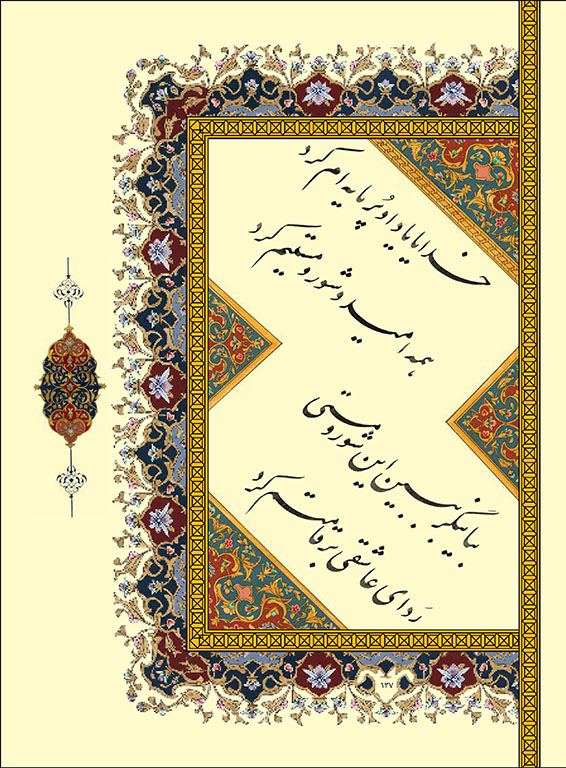 خدایا یاد او پُر مایه ام کرد
همه امید و شور و مستیم کرد
بیا بنگر ببین این شور و مستی
رَدای عاشقی بر قامتم کرد
۱۳۷